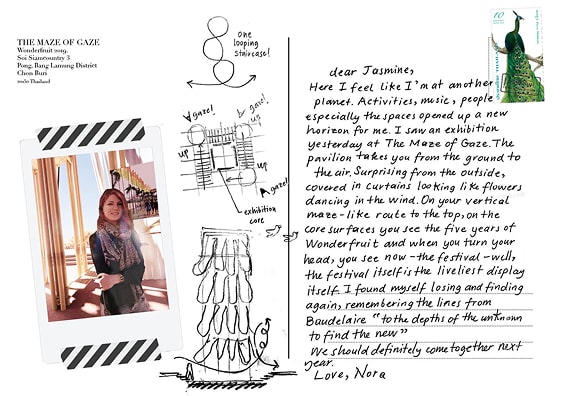 THE MAZE OF GAZE
Wonderfruit 2019.
Soi Siamcountry 3
Pong, Bang Lamung District
Chon Buri
20150 Thailand
one
looping
staircase!
gaze!
gaze!
up
up
gaze!
exhibition
core
10
dear Jasmine,
Here I feel like I'm at another
planet. Activities, music, people
especially the spaces opened up a new
horizon for me. I saw an exhibition
yesterday at The Maze of Gaze. The
pavilion takes you from the ground to
the air. Surprising from the outside,
covered in curtains looking like flowers
dancing in the wind. On your vertical
maze-like route to the top, on the
core surfaces you see the five years of
Wonderfruit and when you turn your
head, you see now-the festival-well,
the festival itself is the liveliest display
itself. I found myself losing and finding
again, remembering the lines from
Baudelaire "to the depths of the unknown
to find the new"
We should definitely come together next
year.
Love, Nora